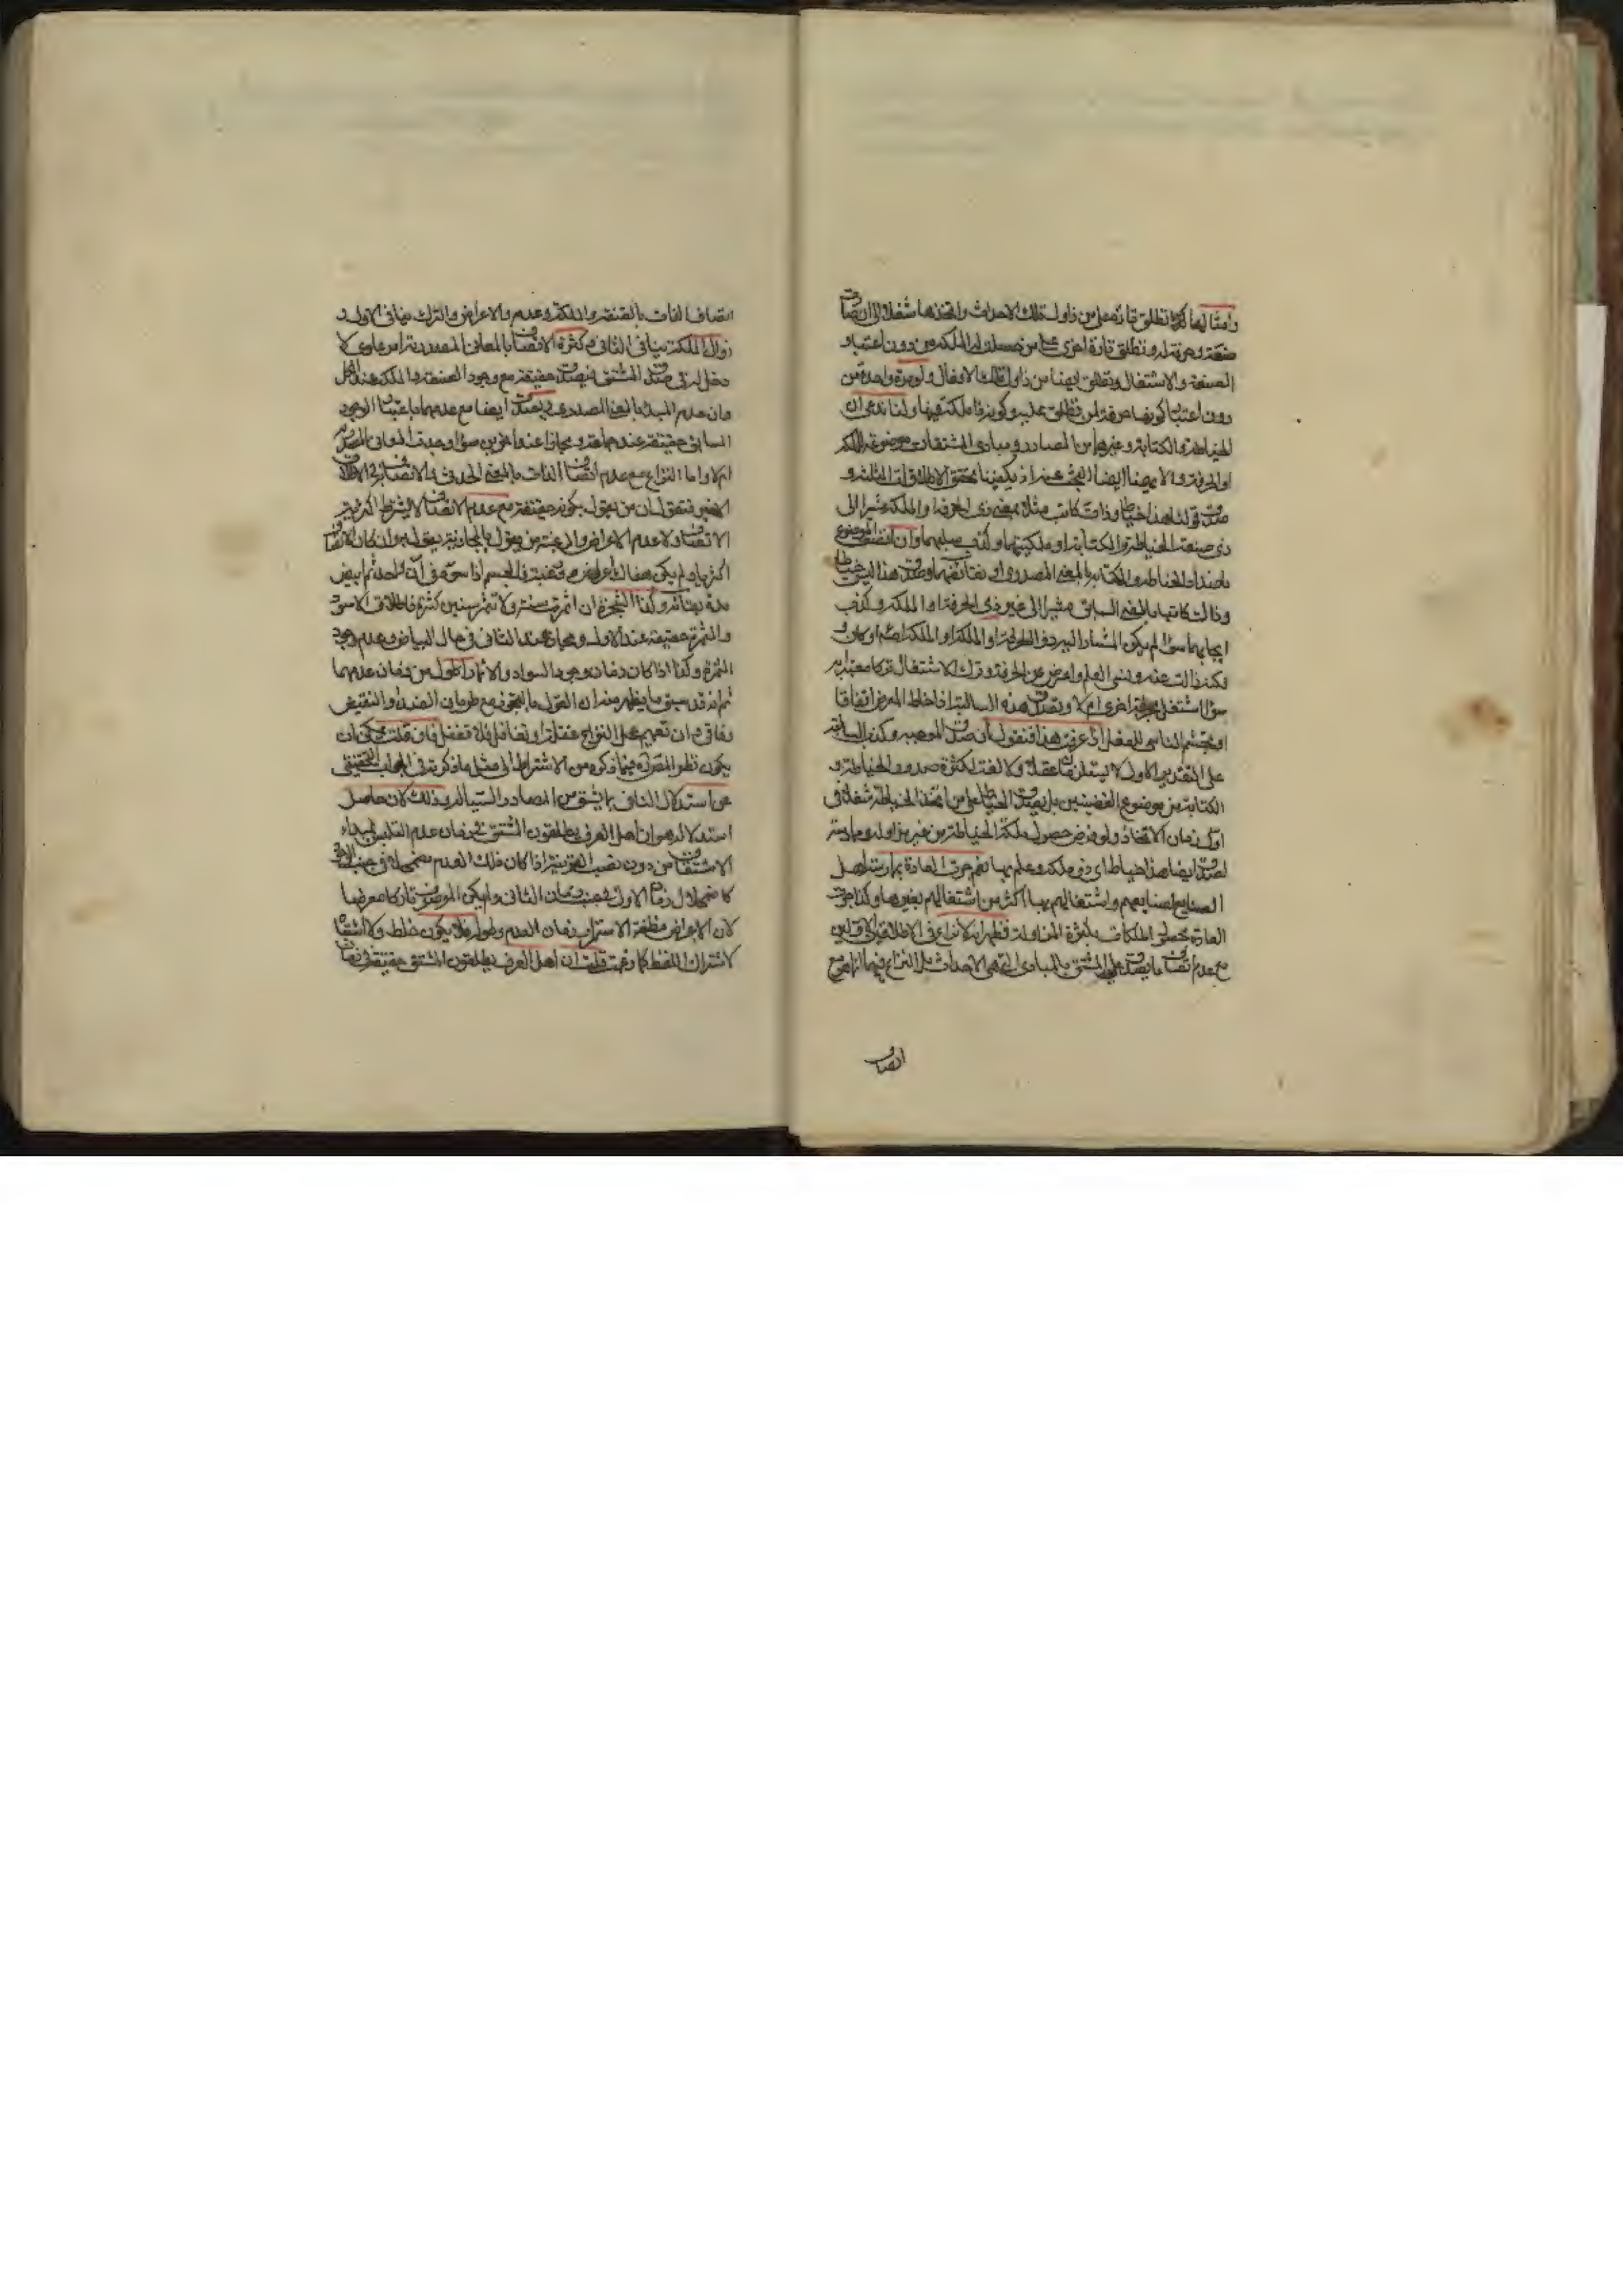 وامثالها كما تطلق تارة على من زاول تلك الاحداث واتخذها شغلا اي
صنعة وحرفة له وتطلق تارة اخرى على من حصل له الملكة من دون اعتبار
الصنعة والاشتغال وتطلق ايضا من زاول تلك الافعال ولو مرة واحدة من
دون اعتبار كونها حرفة لمن تطلق عليه وكونه ذا ملكة فيها ولنا ندعي ان
الخياطة والكتابة وغيرهما من المصادر ومبادي المشتقات موضوعة للملكة
او الحرفة ولا يهمنا ايضا البحث عنه اذ يكفينا تحقق الاطلاقات الثلثة و
صدق قولنا هذا خياط وذاك كاتب مثلا بمعنى ذي الحرفة او الملكة مشيرا الى
ذي صنعة الخياطة والكتابة او ملكيتهما وكذب سلبهما وان اتصف الموضوع
باضداد الخياطة والكتابة بالمعنى المصدري او نقائضهما وصدق هذا ليس خياطا
وذاك كاتبا بالمعنى السابق مشيرا الى غير ذي الحرفة او الملكة وكذب
ايجابهما سواء لم يكن المشار اليه ذو الحرفة او الملكة او الملكة اصلا او كان و
لكن ذالت عنه ونسي العلم واعرض عن الحرفة وترك الاشتغال تركا معتدا به
سواء اشتغل بحرفة اخرى ام لا وتصدق هذه السالبة اذا خاط المعرض اتفاقا
او تجشم الناسي للفعل اذا عرفت هذا فنقول ان صدق الموجبة وكذب السالبة
على التقدير الاول لا يستلزمان عقلا ولا لغة لكثرة صدور الخياطة و
الكتابة من موضوع القضيتين بل يصدق الخياط على من اتخذ الخياطة شغلا في
اول زمان الاتخاذ ولو فرض حصول ملكة الخياطة من غير مزاولة وممارسة
لصدق ايضا هذا خياط اي ذو ملكة وعلم بها نعم جرت العادة بممارسة اهل
الصنايع لصنايعهم واشتغالهم بها اكثر من اشتغالهم بغيرها وكذا جرت
العادة بحصول الملكات بكثرة المزاولة فظهر انه لا نزاع في الاطلاقين الاولين
مع عدم اتصاف ما يصدق عليه المشتق بالمبادي التي هي الاحداث بل النزاع فيهما انما هو مع
اتصاف
اتصاف الذات بالصنعة والملكة وعدمه والاعراض والترك ينافي الاول و
زوال الملكة ينافي الثاني وكثرة الاتصاف بالمعاني المصدرية امر عادي لا
دخل له في صدق المشتق فيصدق حقيقة مع وجود الصنعة والملكة عند الكل
وان عدم المبدء بالمعنى المصدري ويصدق ايضا مع عدمهما باعتبار الوجود
السابق حقيقة عند جماعة ومجازا عند اخرين سواء وجدت المعاني المصدرية
ام لا واما النزاع مع عدم اتصاف الذات بالمعنى الحدثي فالاتصاف في الاطلاق
الاخير فنقول ان من يقول بكونه حقيقة مع عدم الاتصاف لا يشترط اكثرية
الاتصاف ولا عدم الاعراض والرغبة ومن يقول بالمجازية يقول به وان كان الاتصاف
اكثريا ولم يكن هناك اعراض ورغبة فالجسم اذا سود في آن واحد ثم ابيض
مدة بقائه وكذا الشجرة ان اثمرت سنة ولا تثمر سنين كثيرة فاطلاق الاسود
والمثمرة حقيقة عند الاول ومجاز عند الثاني في حال البياض وعدم وجود
الثمرة وكذا اذا كان زمان وجود السواد والاثمار اطول من زمان عدمهما
ثم انه قد سبق ما يظهر منه ان القول بالتجوز مع طريان الضد او النقيض
وفاقي وان تعميم محل النزاع غفلة او تغافل فلا تغفل فان قلت يمكن ان
يكون نظر المصره فيما ذكره من الاشتراط الى مثل ما ذكرته في الجواب التحقيقي
عن استدلال النافي بما يشتق من المصادر السيالة وذلك لان حاصل
استدلاله هو ان اهل العرف يطلقون المشتق في زمان عدم التلبس بمبدء
الاشتقاق من دون نصب القرينة اذا كان ذلك العدم مضمحلا في جنب الاتصاف
كاضمحلال زمان الاول في جنب زمان الثاني ولم يكن الموصوف تاركا معرضا
لان الاعراض مظنة الاستمرار زمان العدم وطوله فلا يكون خلط ولا اشتباه
لاشتراك اللفظ كما زعمت قلت ان اهل العرف يطلقون المشتق حقيقة في زمان